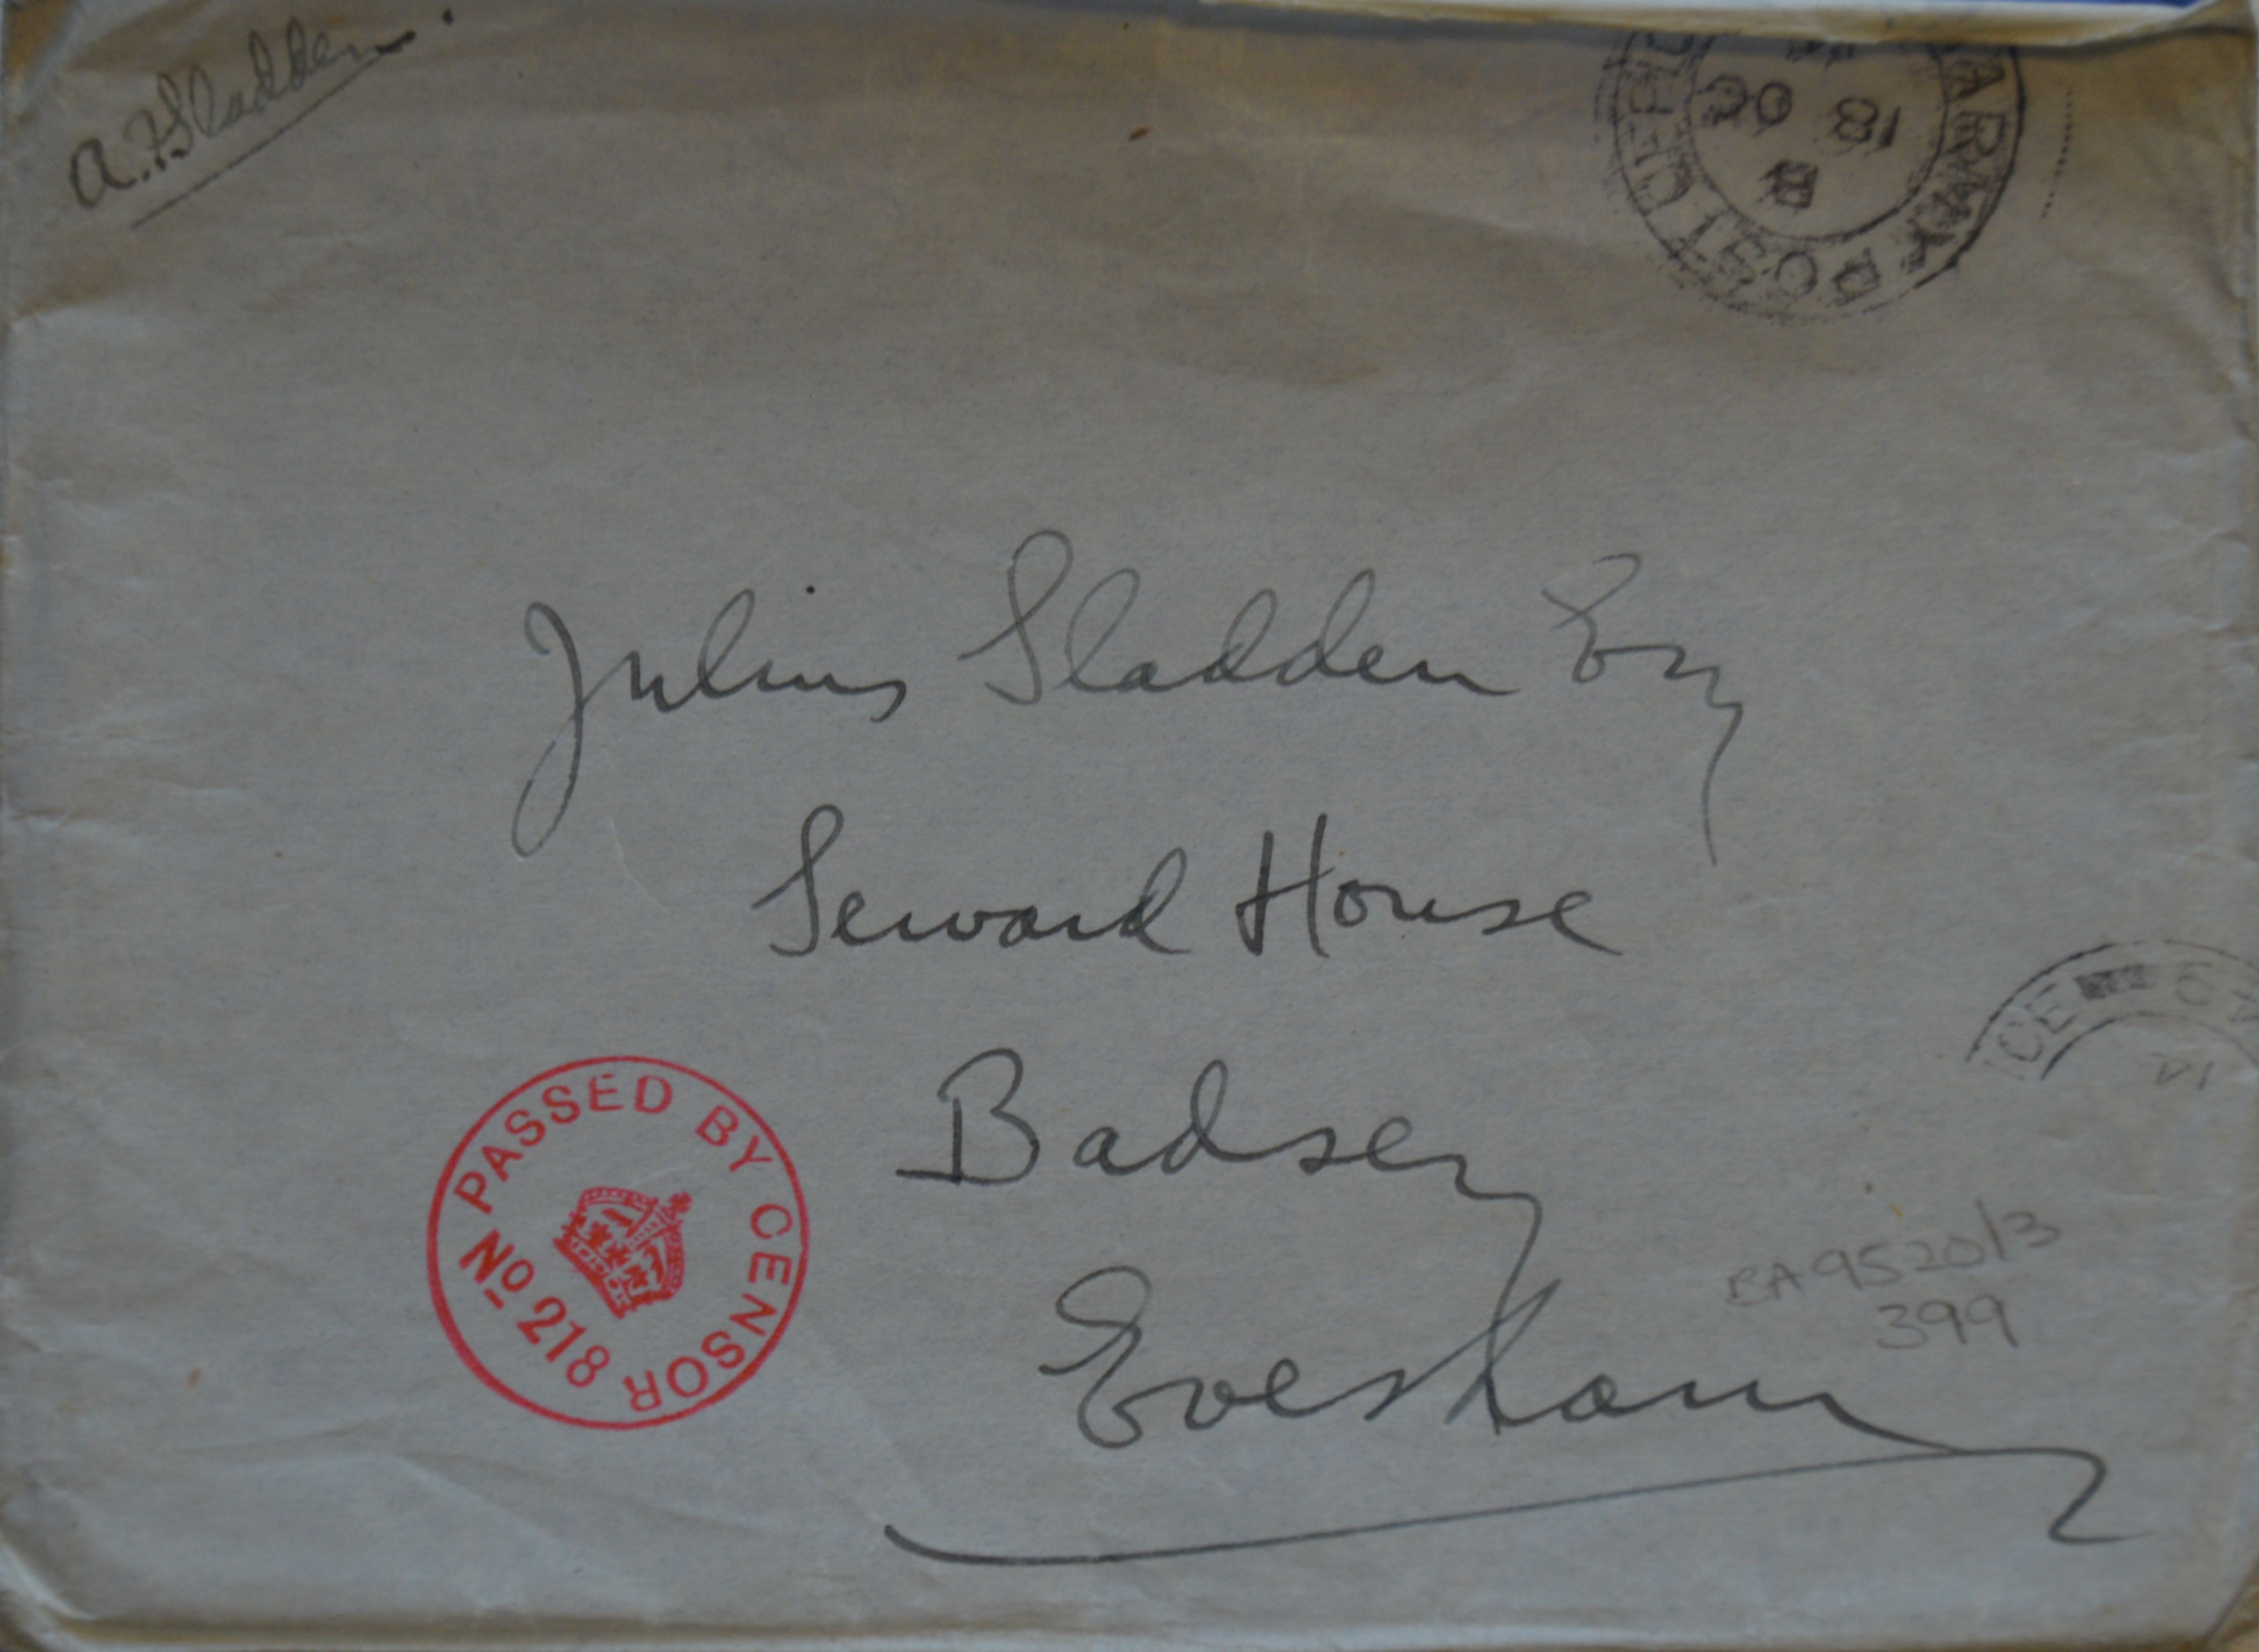 A. F. Sladden.
ARMY POST OFFIC
18
Julius Sladden Esq
Seward House
Badsey
Evesham
PASSED BY CENSOR
No 218
CE
BA 9520/3
399